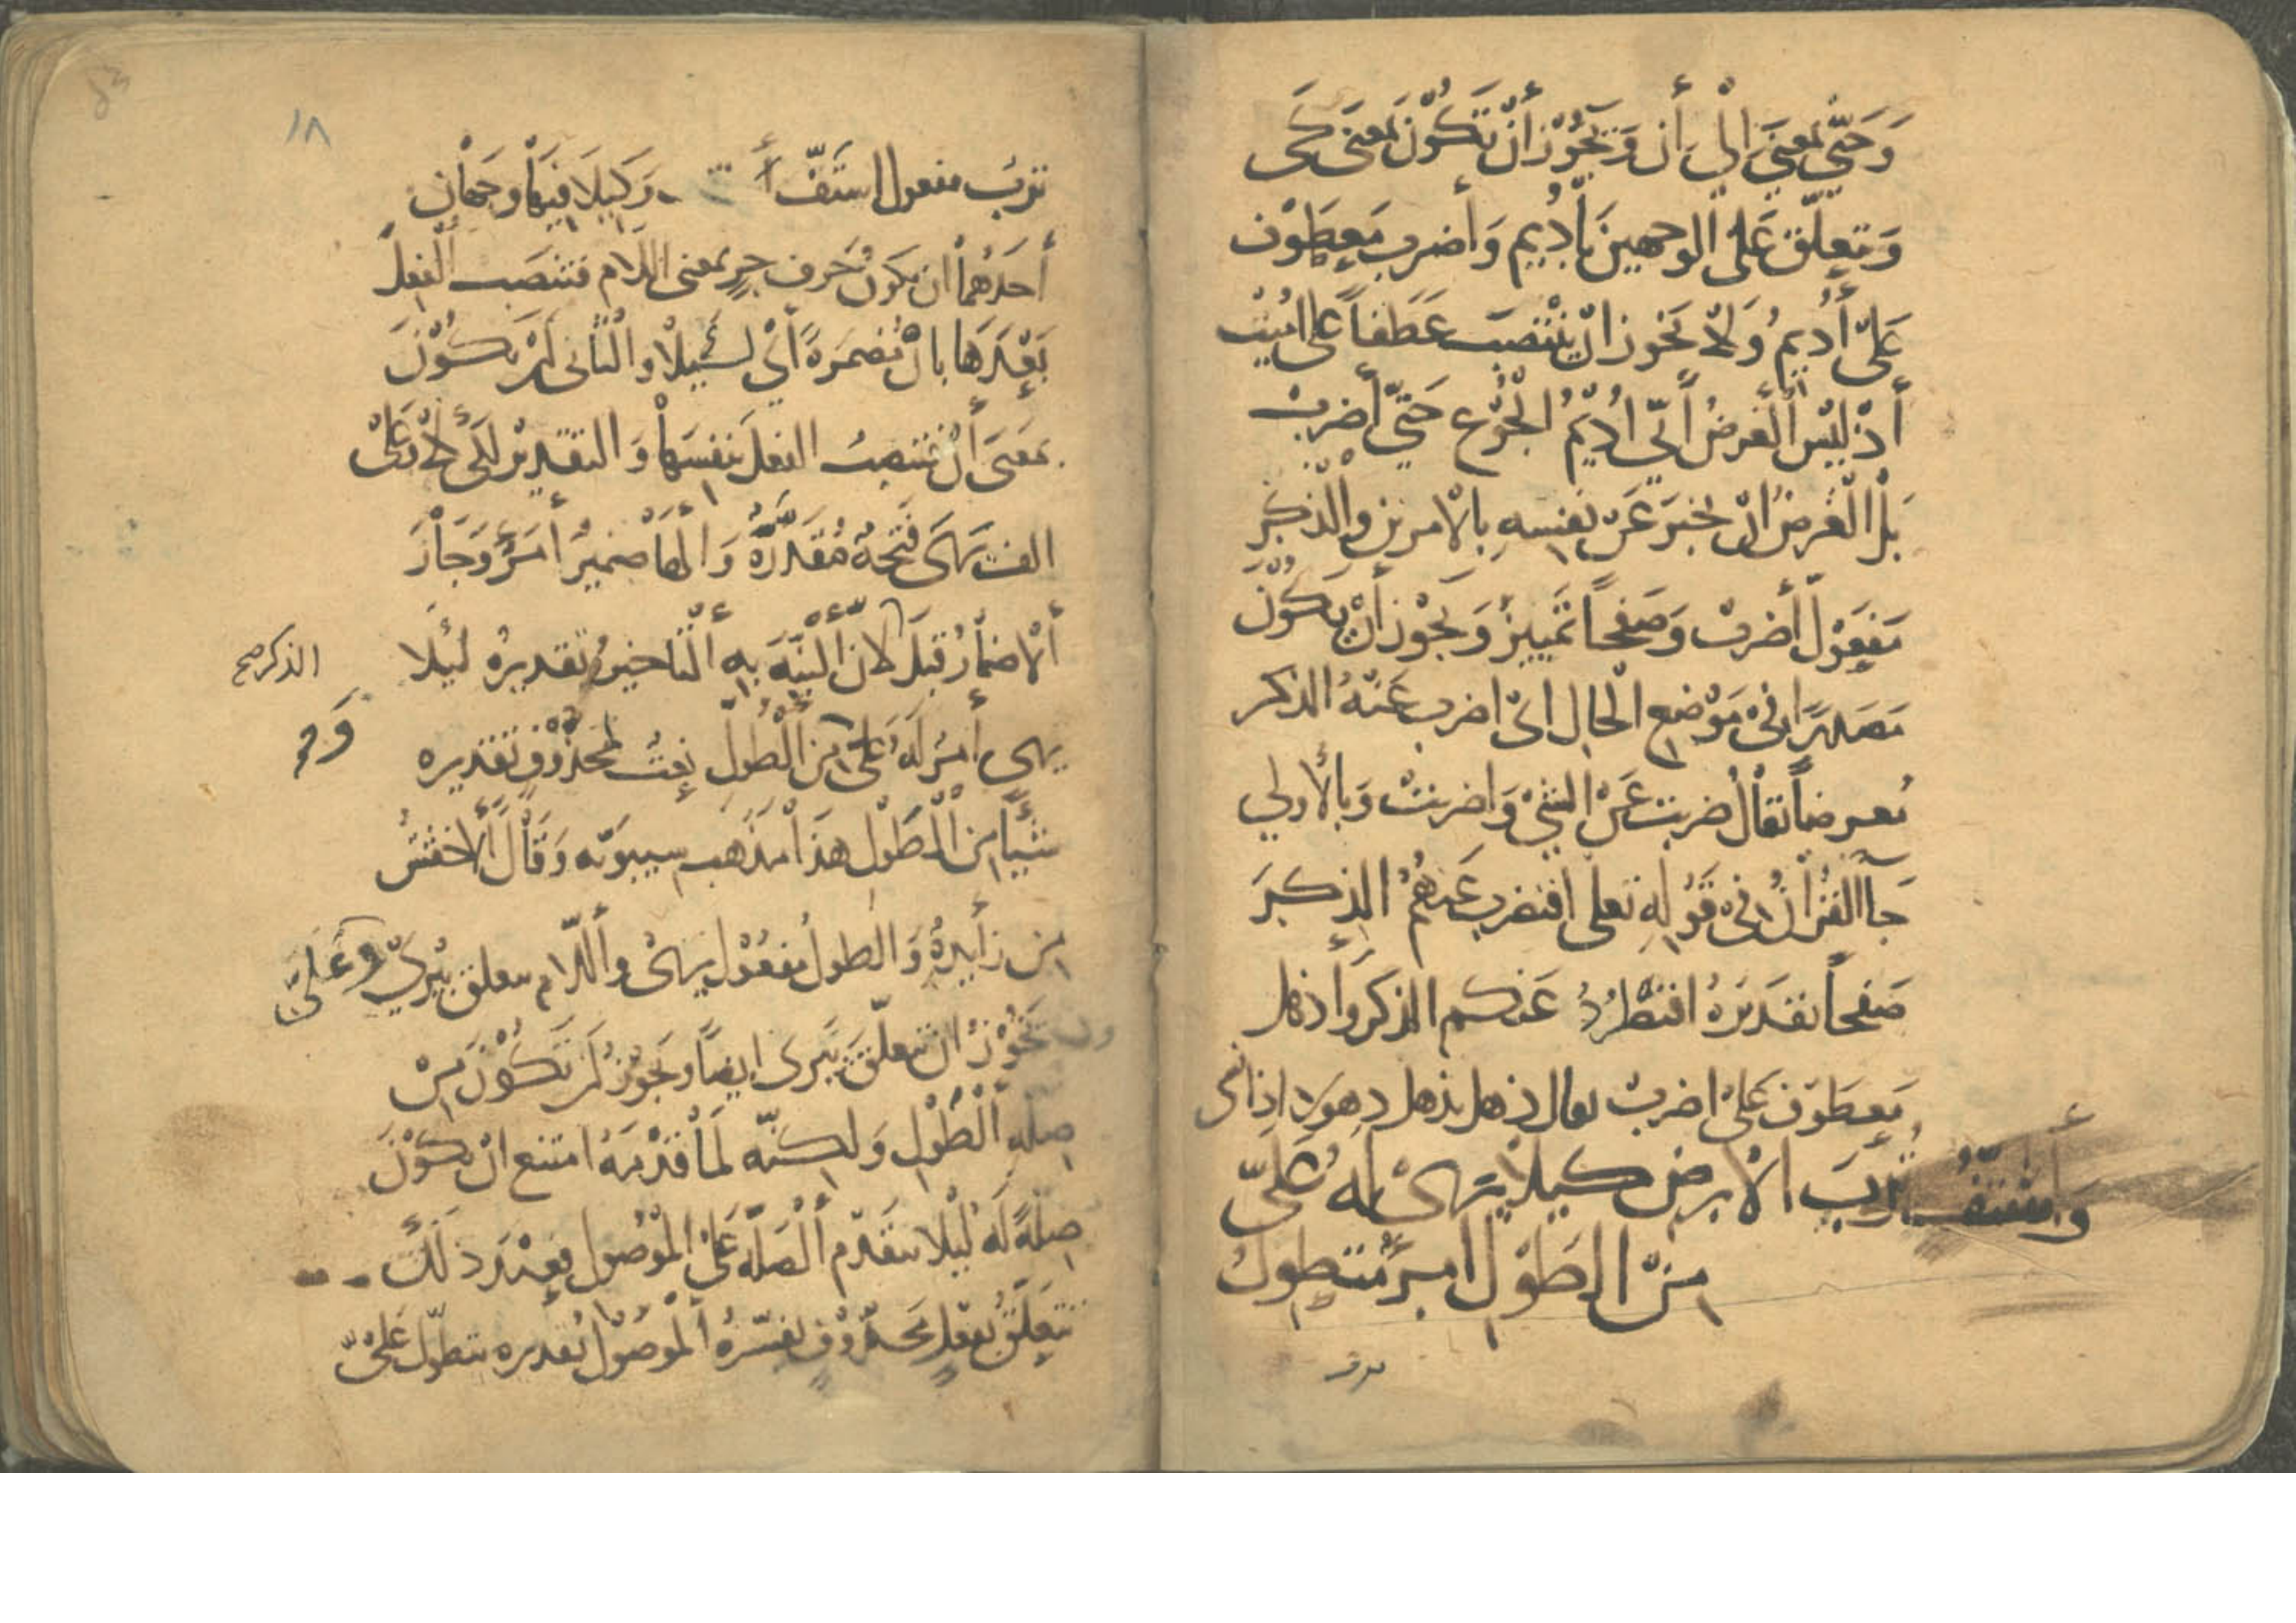 وَحَتّى بمعنَى إلى أن وَيَجُوز أنْ تَكُوْن بمعنَى كَى
وَتتعلّق عَلى الوجهين بأُدِيم وَأضرب مَعطوْف
عَلَى أُدِيمُ وَلَا يَجُوز انْ يَنْتَصِبَ عَطفاً على اُمِيْتَ
أذْ لَيْس الْغرضُ أنّي اُدِيْمُ الْجُوْع حَتّى أضربَ
بَل الْغَرضُ انْ يخبَر عَنْ نفسِهِ بالأمرين والْذّكرَ
مَفعَوْل أضربُ وَصَفحاً تمييزٌ وَيجُوز أنْ يكُوْن
مَصَدرًا فى مَوْضع الْحال اىْ اضرب عَنْهُ الذكر
مُعرضاً يقالُ ضربت عَنْ الشئ وَاضربتْ وَبالأولي
جآ القُرآنُ فى قَوْلِهِ تعلى افنضرب عَنكُمُ الذِكرَ
صَفحاً تقديَرهُ افنَطّرُدُ عَنكم الذكرَ وَأذهل
مَعطَوف عَلىْ اضربُ يقال ذهل يذهل ذهولا اذا نسى
وَأستَفُّ تُربَ الأرضِ كيلا يَرىْ لَه عَلىّ
مِنْ الطَوْلِ امرؤٌ متطول
ترب
١٨
تربَ مفعول استَفّ أ وَكَيلَا فيَها وجهان
أحَدُهمَا ان يكونُ حَرف جرٍ بمعنى اللام فتنصَب الْفعلَ
بَعْدَها بانْ مُضمَرةً أىْ لكَيلَا والْثَانى أنْ يكُوْنَ
بمَعنَى أنْ فتنصبُ الفعلَ بنفسَها وَالتقديرْ لكَى لا وَعَلىْ
الف يَرَى فَتحَةٌ مُقدّرَةٌ وَالْهَا ضميرُ أمرئٍ وَجَازَ
ألْاضمارُ قبلَ لانَّ ألنيّةَ بِهِ ألْتاخيرُ تقديرهُ ليئَلا
الذكر صح
يرى أمرؤ لَهُ عَلىَّ مِن ألْطُوْلِ نعتُ لمحذُوْفٍ تقديره
شَيْأً مِن ألْطَوْلِ هذَا مذهب سيبَويْه وَقَالَ ألاخفشُ
مِن زأيدةُ وَالْطول مفعُوْل يرىْ وأللّام متعلق بيُرىْ وعَلَىّ
يَجُوْزُ انْ تتعلّقَ بيَرى ايضاً وَيجُوزُ أنْ تَكُوْنَ مِنْ
صِلَةِ ألْطَوْلِ وَلكنّه لَمَا قدّمَهُ امتنع انْ يكُوْنَ
صِلةً لَهُ لَيْلا تتقدّم ألْصلَة عَلىْ الْمَوْصُول فعِنْدَ ذلكَ
تتعلّقُ بفعْلٍ محذُوْفٍ يفسّرهُ ألْموصُوْل تقديره يتطوّل عَلىَّ